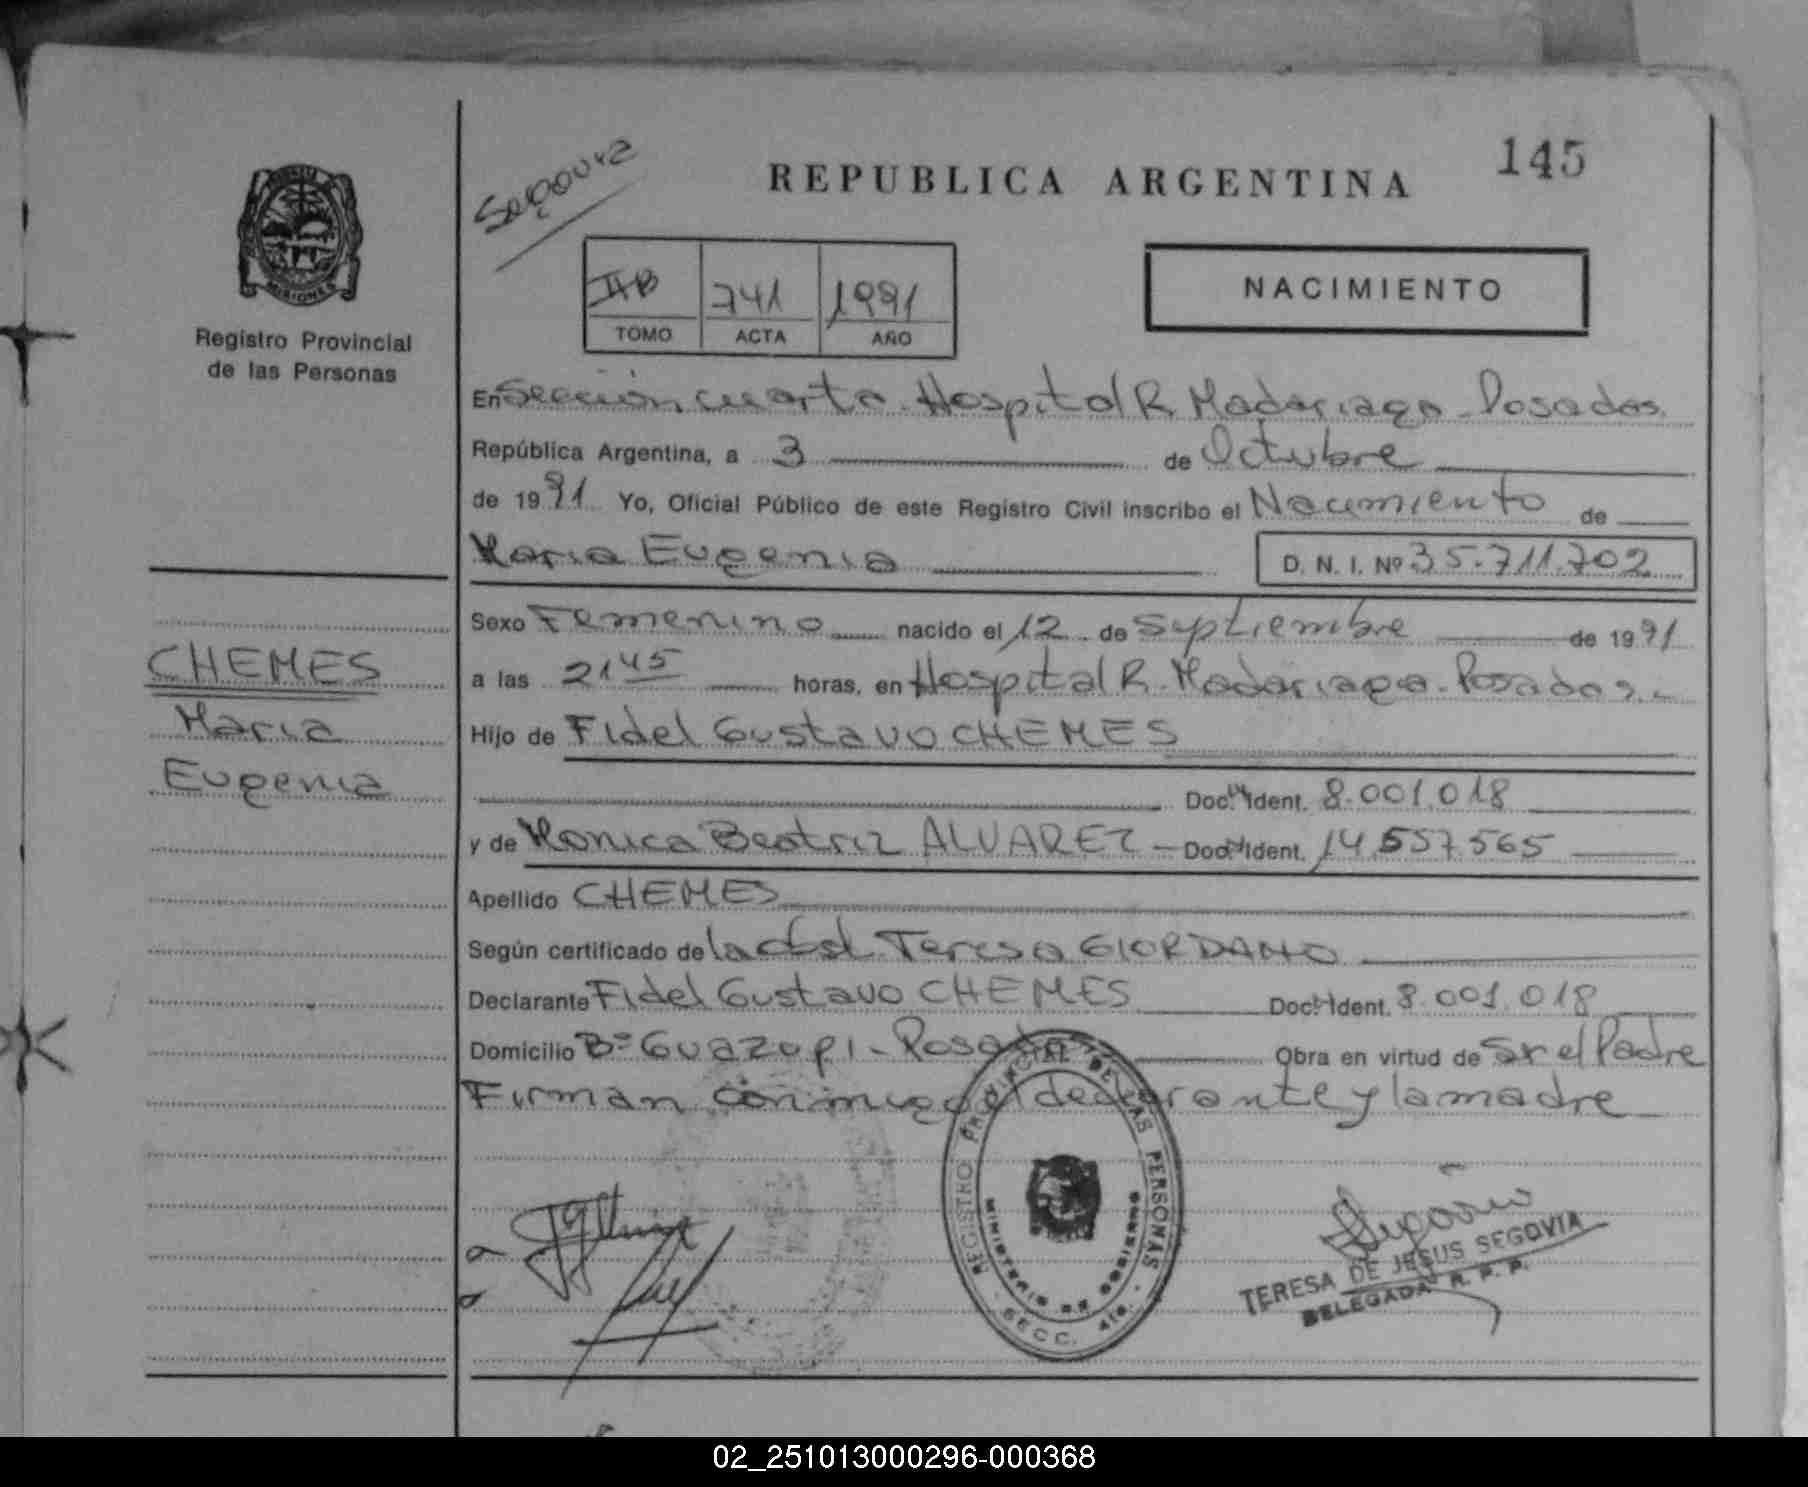 145
Segovia
REPUBLICA ARGENTINA
MISIONES
Registro Provincial
de las Personas
NACIMIENTO
II B 741 1991
TOMO ACTA AÑO
En Sección cuarta Hospital R. Madariaga - Posadas.
República Argentina, a 3 de Octubre
de 1991 Yo, Oficial Público de este Registro Civil inscribo el Nacimiento de
Maria Eugenia D. N. I. Nº 35.711.702
Sexo Femenino nacido el 12 de Septiembre de 1991
a las 21 45 horas, en Hospital R. Madariaga - Posadas.-
Hijo de Fidel Gustavo CHEMES
Doc. Ident. 8.001.018
y de Monica Beatriz ALVAREZ - Doc. Ident. 14.557.565
Apellido CHEMES
Según certificado de la obst. Teresa GIORDANO
Declarante Fidel Gustavo CHEMES Doc. Ident. 8.001.018
Domicilio Bº Guazupi - Posadas Obra en virtud de Sr el Padre
Firman conmigo el declarante y la madre
CHEMES
Maria
Eugenia
REGISTRO PROVINCIAL DE LAS PERSONAS
MINISTERIO DE GOBIERNO
SECC. 4ta.
Segovia
TERESA DE JESUS SEGOVIA
DELEGADA R. P. P.
02_251013000296-000368